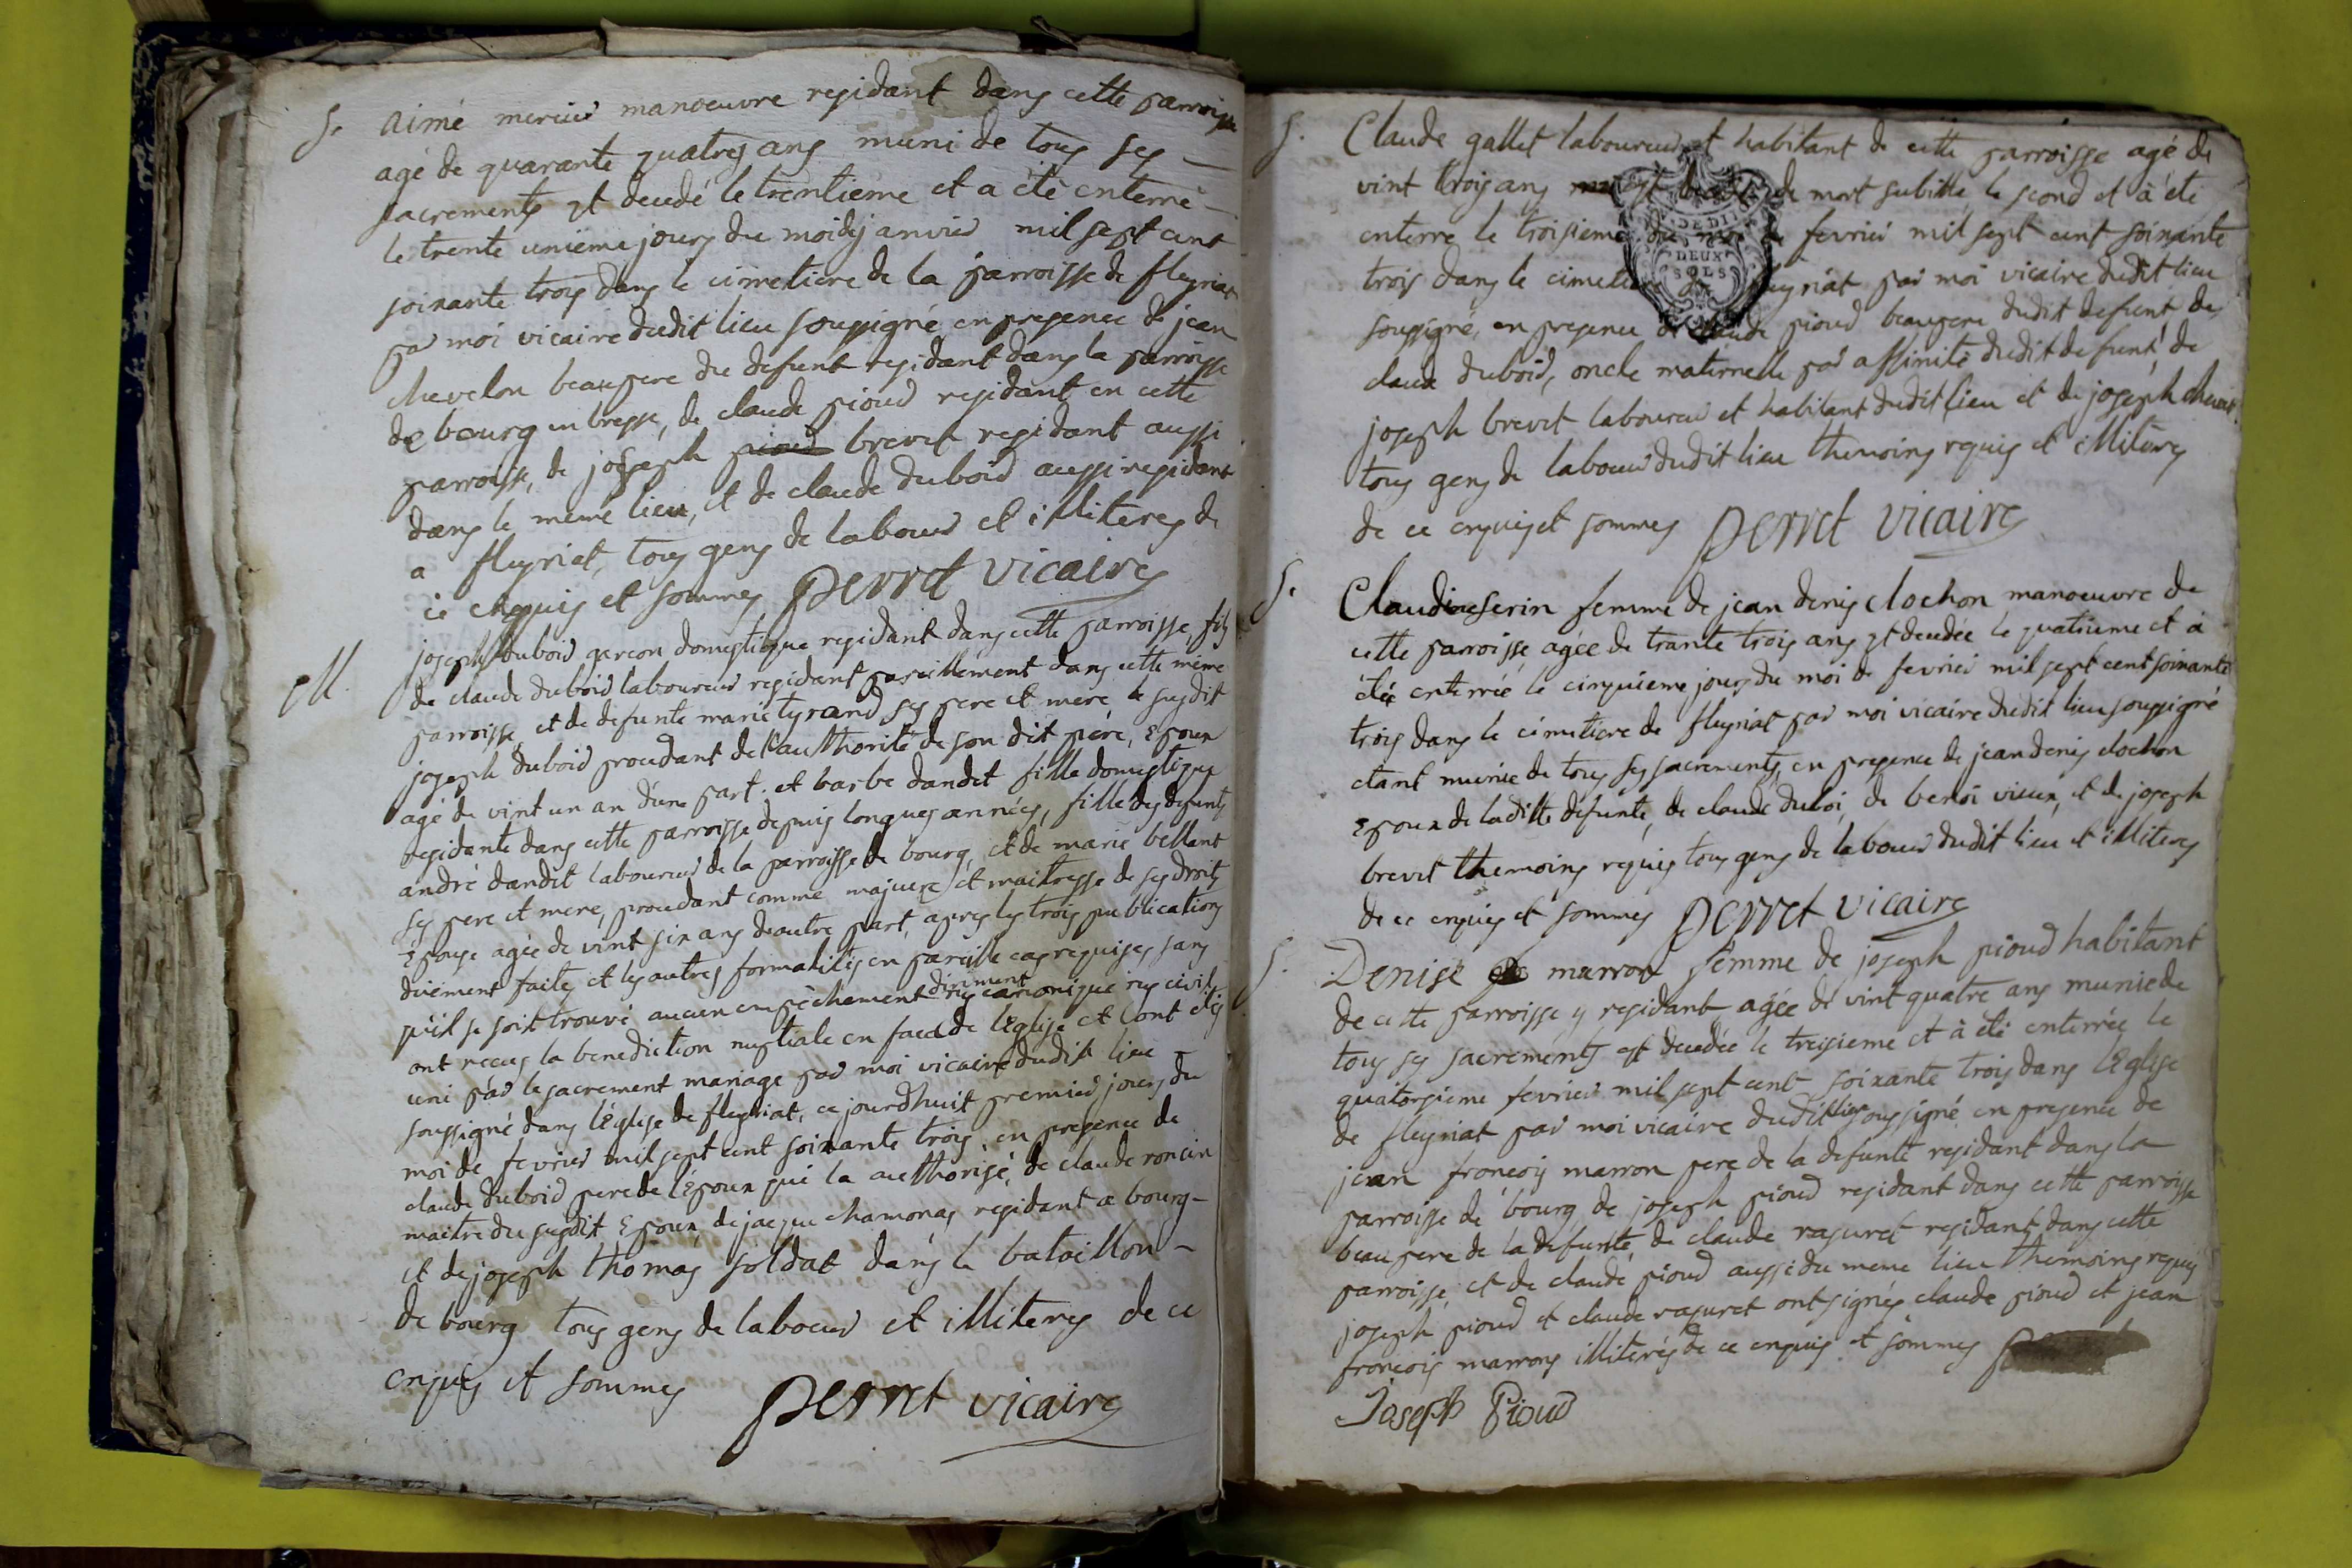 S. aimé mercier manoeuvre residant dans cette parroisse
agé de quarante quatres ans muni de tous ses
sacrements et decedé le trentieme et a été enterré
le trente unieme jours du moi dj anvier mil sept cent
soixante trois dans le cimetiere de la parroisse de fleyriat
par moi vicaire dudit lieu soussigné en presence de jean
chevelon beaupere du defunt residant dans la parroisse
de bourg en bresse, de claude pioud residant en cette
parroisse, de joseph brevet residant aussi
dans le meme lieu, et de claude duboid aussi residant
a fleyriat, tous gens de labour et illiteres de
ce enquis et sommes perret vicaire
M. joseph duboid garcon domestique residant dans cette parroisse, fils
de claude duboid laboureur residant pareillement dans cette meme
parroisse, et de defunte marie tyrand ses pere et mere le susdit
joseph duboid procedant de l'authorité de son dit père, Epoux
agé de vint un an d'une part. et barbe dandet fille domestique
residante dans cette parroisse depuis longues années, fille des defunts
andré dandet laboureur de la parroisse de bourg, et de marie bellant
ses pere et mere, procedant comme majeure et maitresse de ses droits
Epouse agée de vint six ans d'autre part, apres les trois publications
duement faites et les autres formalités en pareille cas requises sans
qu'il se soit trouvé aucun empechement diriment ny canonique ny civil.
ont recus la benediction nuptiale en face de l'Eglise et ont étés
uni par le sacrement mariage par moi vicaire dudit lieu
soussigné dans l'Eglise de fleyriat, ce jourdhuit premier jours du
moi de fevrier mil sept cent soixante trois, en presence de
claude duboid pere de l'Epoux qui la authorisé, de claude roncin
maitre du susdit Epoux, de jacque chamonas residant a bourg
et de joseph thomas soldat dans le bataillon
de bourg tous gens de labour et illiteres de ce
enquis et sommes perret vicaire
S. Claude gallet laboureur et habitant de cette parroisse agé de
vint trois ans de mort subitte le second et à été
enterré le troisieme du fevrier mil sept cent soixante
trois dans le cimetiere de fleyriat par moi vicaire dudit lieu
soussigné, en presence de claude pioud beaupere dudit defunt de
claude duboid, oncle maternelle par affinité dudit defunt, de
joseph brevet laboureur et habitant dudit lieu et de joseph
tous gens de labour dudit lieu themoins requis et illiteres
de ce enquis et sommes perret vicaire
S. Claudine serin femme de jean denis clochon manoeuvre de
cette parroisse agée de trante trois ans et decedée le quatrieme et à
étée enterrée le cinquieme jours du moi de fevrier mil sept cent soixante
trois dans le cimetiere de fleyriat par moi vicaire dudit lieu soussigné
etant munie de tous ses sacrements, en presence de jean denis clochon
Epoux de laditte defunte, de claude duboi, de benoi vieux, et de joseph
brevet themoins requis tous gens de labour dudit lieu et illiteres
de ce enquis et sommes perret vicaire
S. Denise marron femme de joseph pioud habitant
de cette parroisse y residant agée de vint quatre ans munie de
tous ses sacrements est decedée le treisieme et à été enterrée le
quatorsieme fevrier mil sept cent soixante trois dans l'Eglise
de fleyriat par moi vicaire dudit lieu soussigné en presence de
jean froncois marron pere de la defunte residant dans la
parroisse de bourg de joseph pioud residant dans cette parroisse
beaupere de la defunte, de claude rasuret residant dans cette
parroisse, et de claude pioud aussi du meme lieu themoins requis
joseph pioud et claude rasuret ont signés claude pioud et jean
froncois marrons illiterés de ce enquis et sommes
Joseph Pioud
DEUX
SOLS